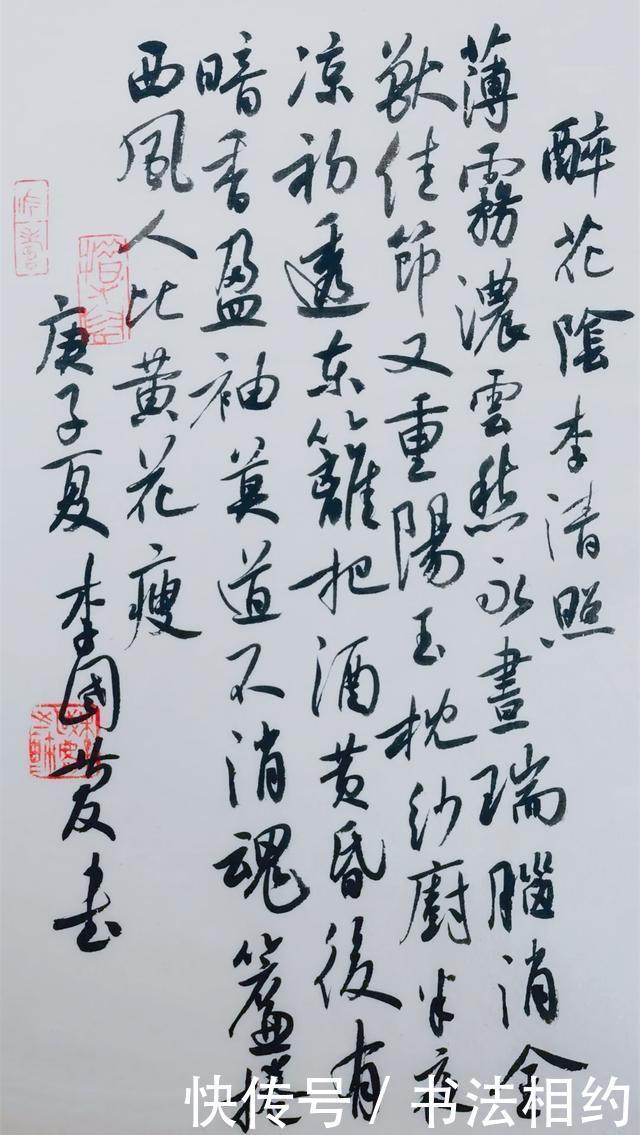 醉花陰李清照
薄霧濃雲愁永晝瑞腦消金
獸佳節又重陽玉枕紗廚半夜
凉初透東籬把酒黄昏後有
暗香盈袖莫道不消魂簾捲
西風人比黄花瘦
庚子夏李國書
快传号 / 书法相约